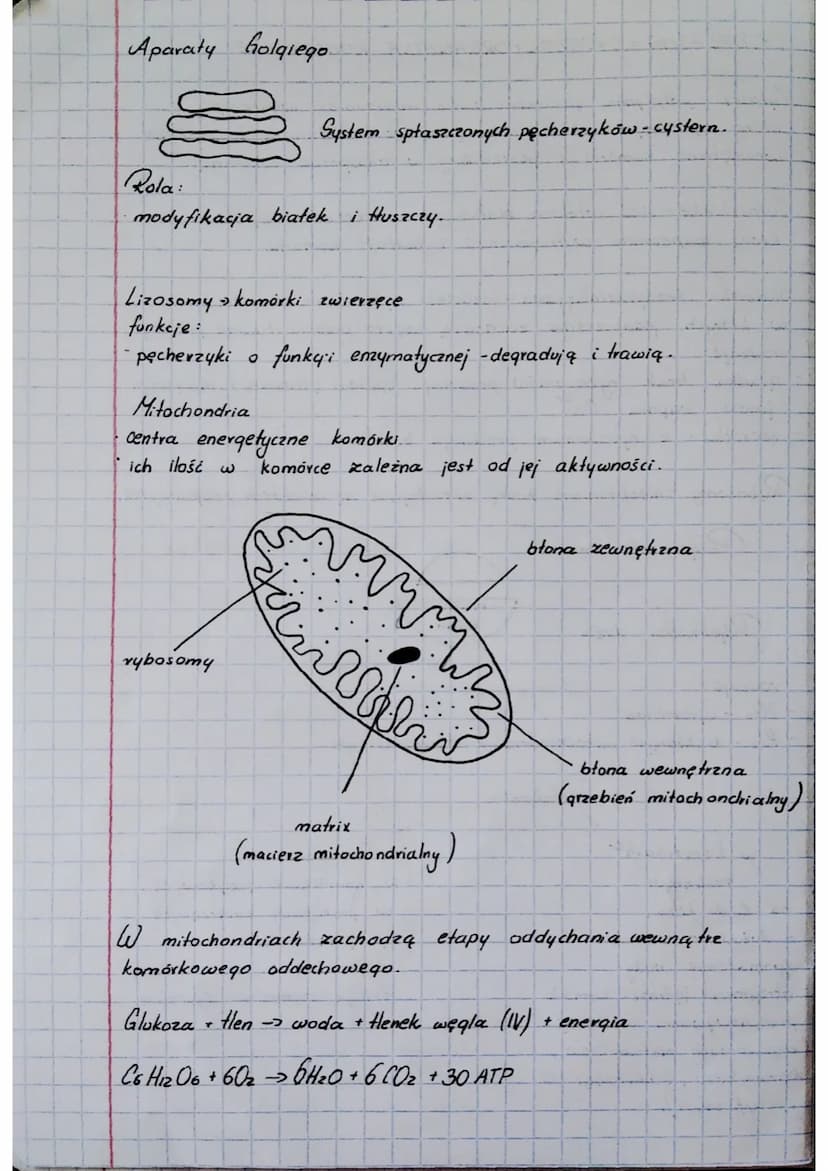 Aparaty Golgiego
System spłaszczonych pęcherzyków - cystern.
Rola:
modyfikacja białek i tłuszczy.
Lizosomy → komórki zwierzęce
funkcje:
- pęcherzyki o funkcji enzymatycznej - degradują i trawią.
Mitochondria
· centra energetyczne komórki
· ich ilość w komórce zależna jest od jej aktywności.
błona zewnętrzna
rybosomy
błona wewnętrzna
(grzebień mitochondrialny)
matrix
(macierz mitochondrialny)
W mitochondriach zachodzą etapy oddychania wewnątrz
komórkowego oddechowego.
Glukoza + tlen → woda + tlenek węgla (IV) + energia
C6H12O6 + 6O2 → 6H2O + 6CO2 + 30 ATP